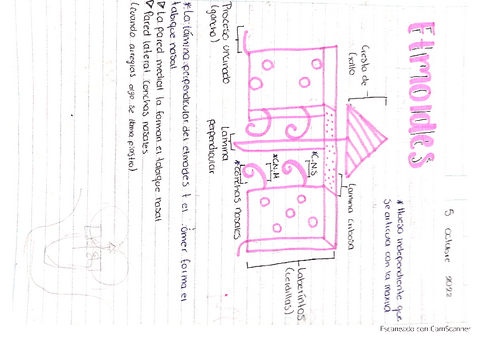 Etmoides
5 octubre 2022
* Hueso independiente que
se articula con la
Cresta de
Gallo
Lamina Cribosa
*C.N.S
*C.N.M
*conchas nasales
Laberintos
(celdillas)
Lamina
perpendicular
Proceso uncinado
(gancho)
* La lámina perpendicular del etmoides y el vómer forma el
tabique nasal
▷ La pared medial la forman el tabique nasal
▷ Pared lateral Conchas nasales
(cuando arreglas algo se llama plastia)
Escaneado con CamScanner